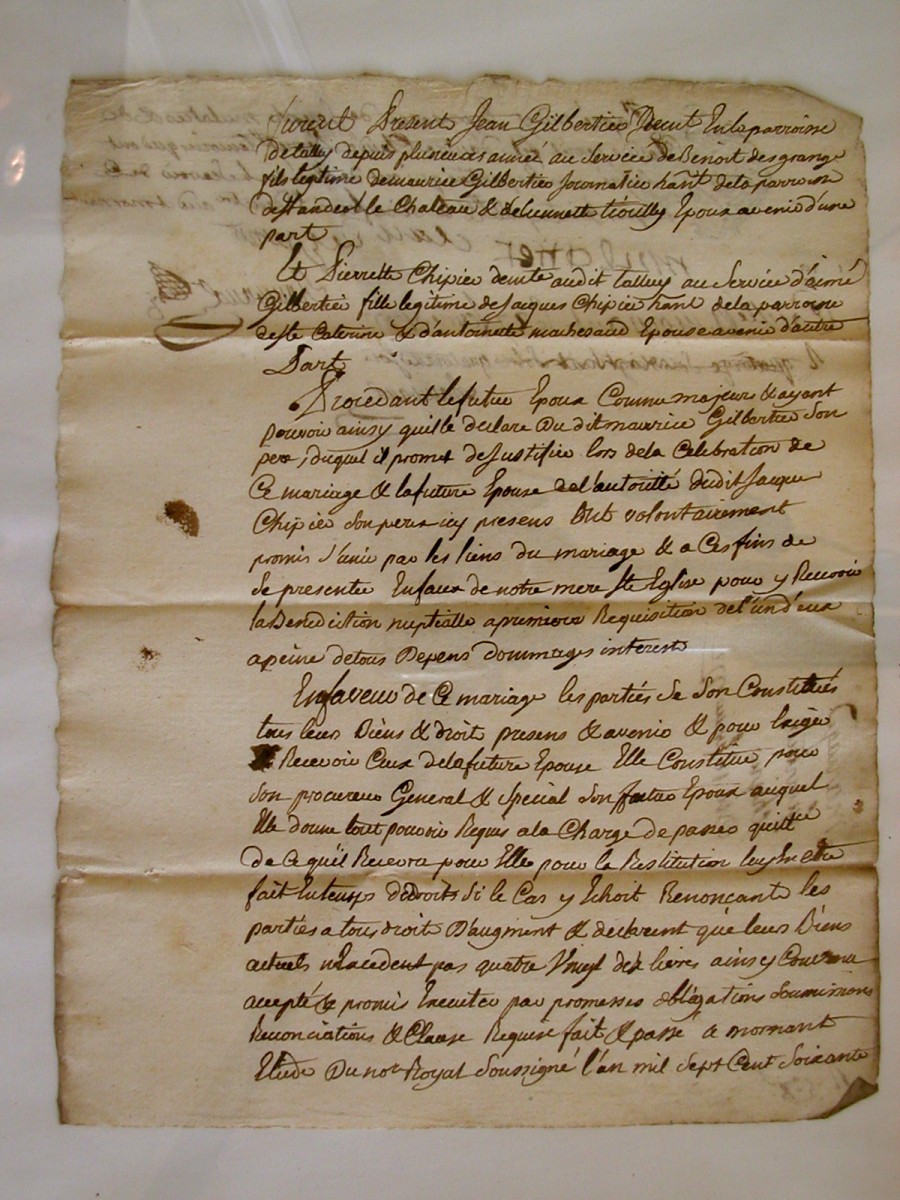 furent Present Jean Gilbertier Dem.t En la parroisse
de talluy depuis plusieures année au service de Benoit des grange
fils legitime de maurice Gilbertier Journalier ha.nt de la parroisse
de st andeol le Chateau & de Epoux avenir d'une
part
Et Pierrette Chipier demte audit talluy au Service d'aimé
Gilbertier fille legitime de Jacques Chipier ha.nt de la parroisse
de ste Caterine & d'antoinette Epouse avenir d'autre
Part
Procedant le futur Epoux Comme majeurs & ayant
pouvoir ainsy quil le declare Du dit maurice Gilbertier Son
pere, duquel il promet de Justifier lors de la Celebration de
Ce mariage & la future Epouse de l'autorité dudit Jacque
Chipier Son pere icy presens Ont volontairement
promis s'unir par les liens du mariage & a Ces fins de
Se presenter En face de notre mere Ste Eglise pour y Recevoir
la Benediction nuptialle a premiere Requisition de l'un d'eux
a peine de tous Depens dommages interest
En faveur de Ce mariage les parties Se Son Constitués
tous leurs Biens & droit presens & avenir & pour Exiger
& Recevoir Ceux de la future Epouse Elle Constitue pour
Son procureur General & Special Son futur Epoux auquel
Elle donne tout pouvoir Requis a la Charge de passer quitte
de Ce qu'il Recevra pour Elle pour la Restitution luy En etre
fait En temps de droit Si le Cas y Echoit Renonçant les
parties a tous droit D'augment & declarent que leurs Biens
actuels n'Excedent pas quatre Vingt dix livres ainsy Convenu
accepté & promis Executer par promesses obligations Soumissions
Renonciations & Clause Requise fait & passé a mornant
Etude Du not.re Royal Soussigné l'an mil Sept Cent Soixante